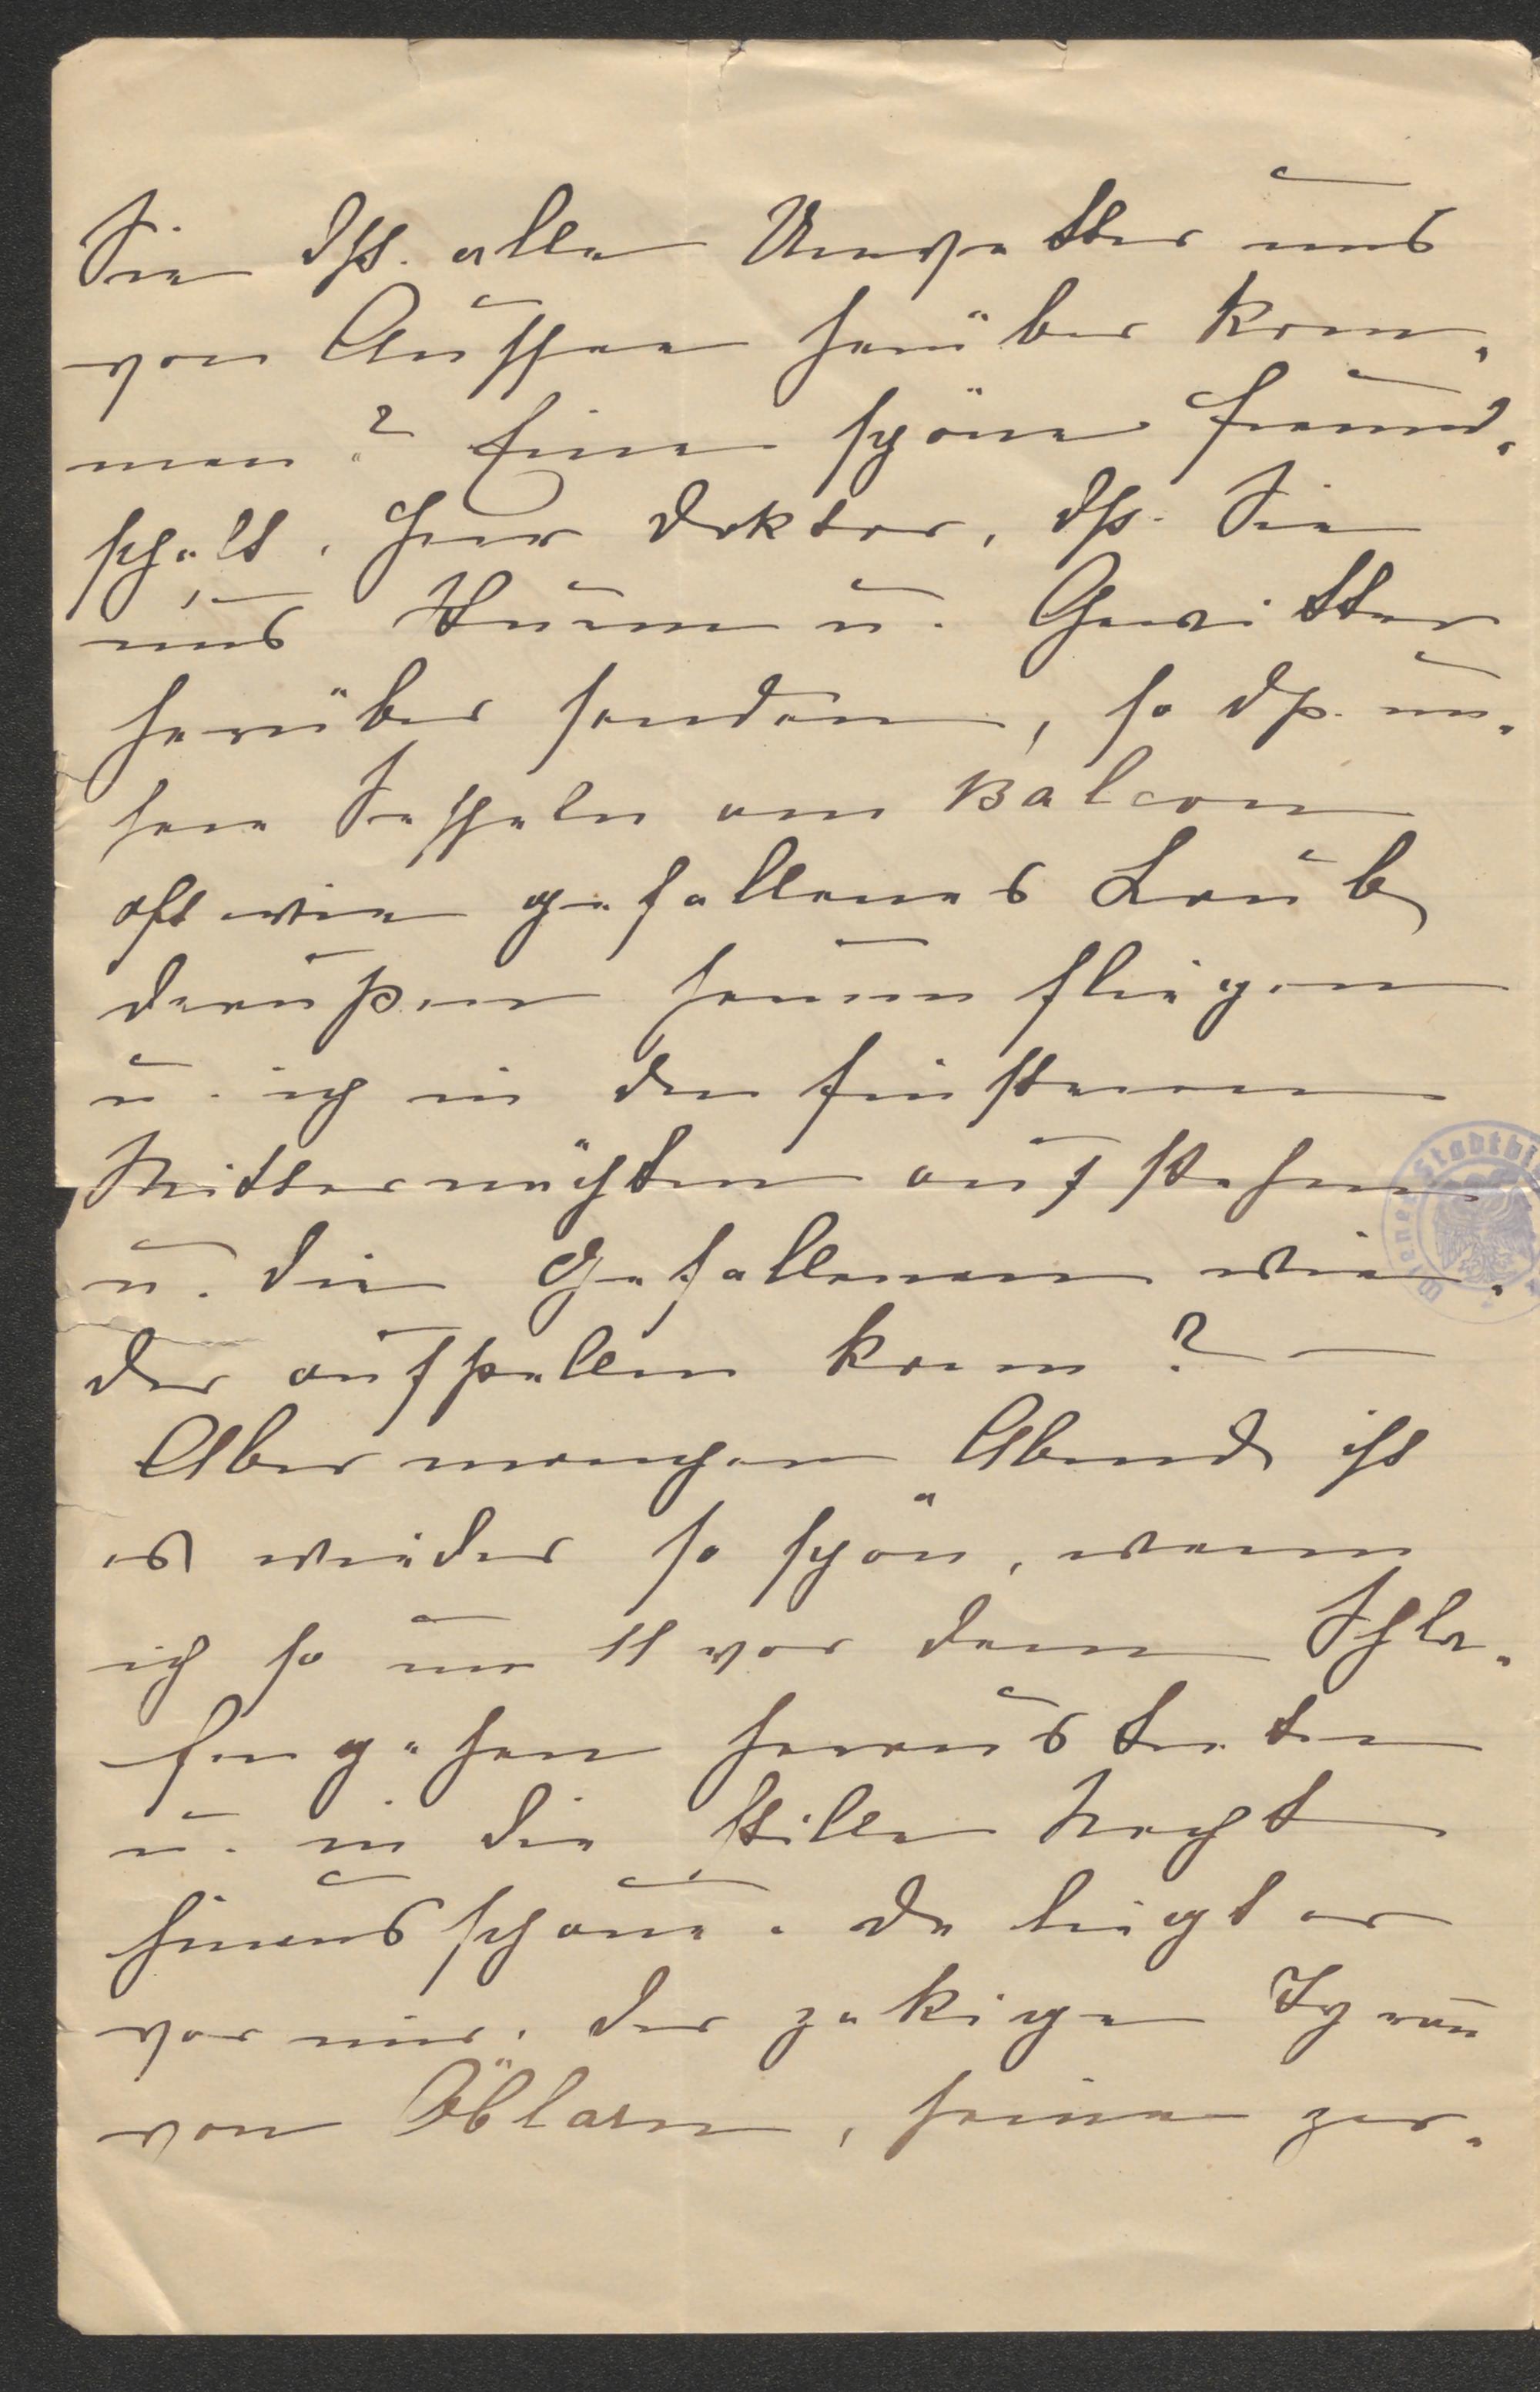 Sie dß. alle Unwetter uns
von Aussee herüber kom-
men? Eine schöne Freund-
schaft, Herr Doktor, dß. Sie
uns Sturm u. Gewitter
herüber senden, so dß. un-
sere Sesseln am Balcon
oft wie gefallenes Laub
draußen herum fliegen
u. ich in den finsteren
Mitternächten aufstehen
u. die Gefallenen wie-
der aufstellen kann? —
Aber manchen Abend ist
es wieder so schön, wenn
ich so um 11 vor dem Schla-
fengehen heraustrete
u. in die stille Nacht
hinausschaue. Da liegt er
vor mir, der zakige Tyrann
von Öblarn, seine zer-
Wiener Stadtbi